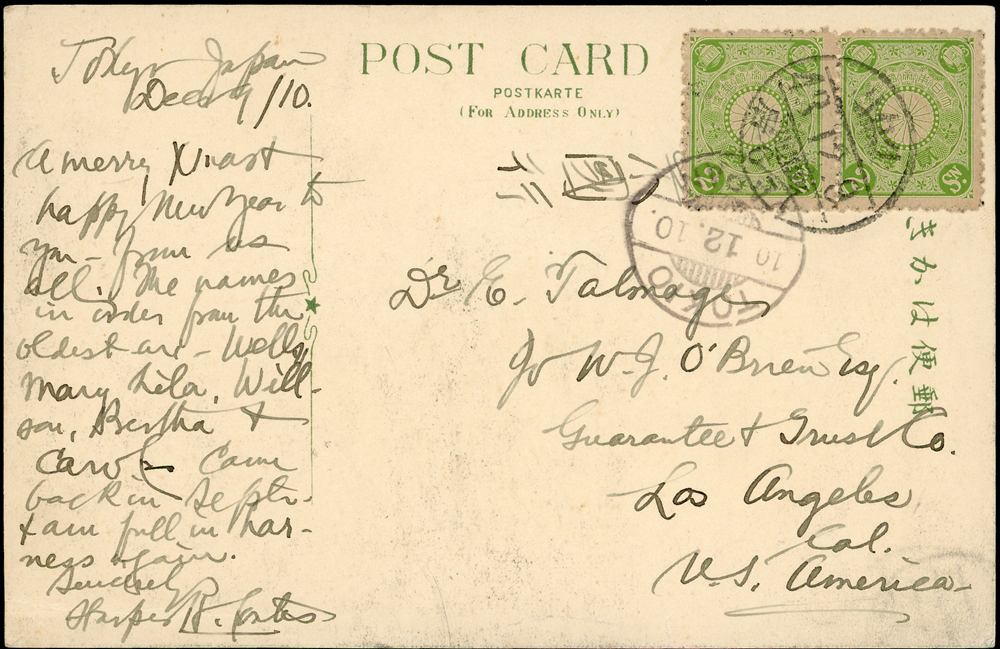 Tokyo Japan
Dec 9/10.
A merry Xmast
happy New Year to
you - from us
all. The names
in order from the
oldest are - Welly,
Mary Lila, Will-
son, Bertha &
Carol. Came
back in Septr.
& am full in har-
ness again.
Sincerely
Harper H. Coates
POST CARD
POSTKARTE
(For Address Only)
Dr E. Talmage
W. J. O'Brien Esq.
Guarantee & Trust Co.
Los Angeles
Cal.
U.S. America
きかは便郵
10.12.10